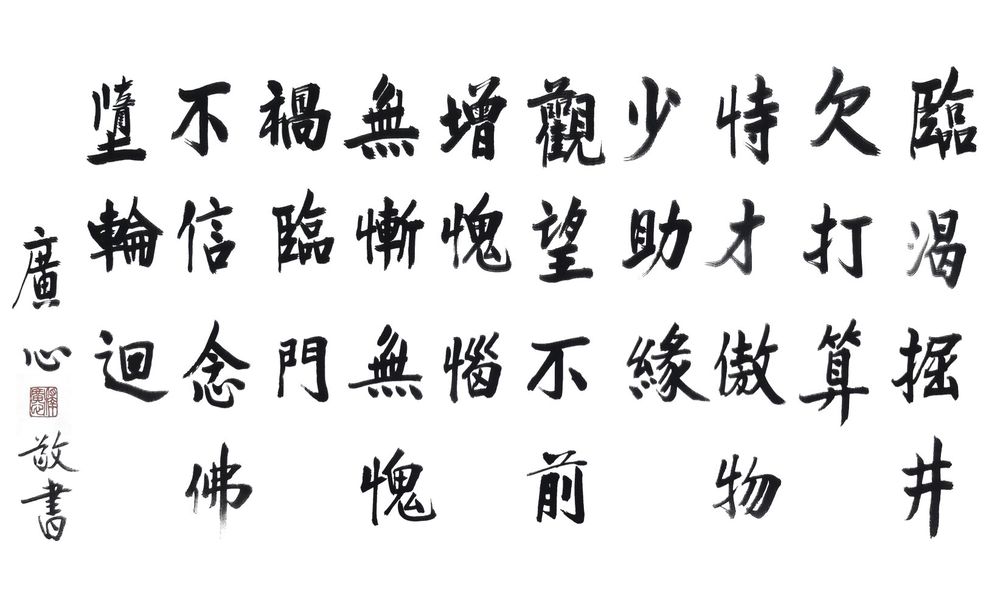 臨渴掘井
欠打算
恃才傲物
少助緣
觀望不前
增愧惱
無慚無愧
禍臨門
不信念佛
墮輪迴
廣心敬書